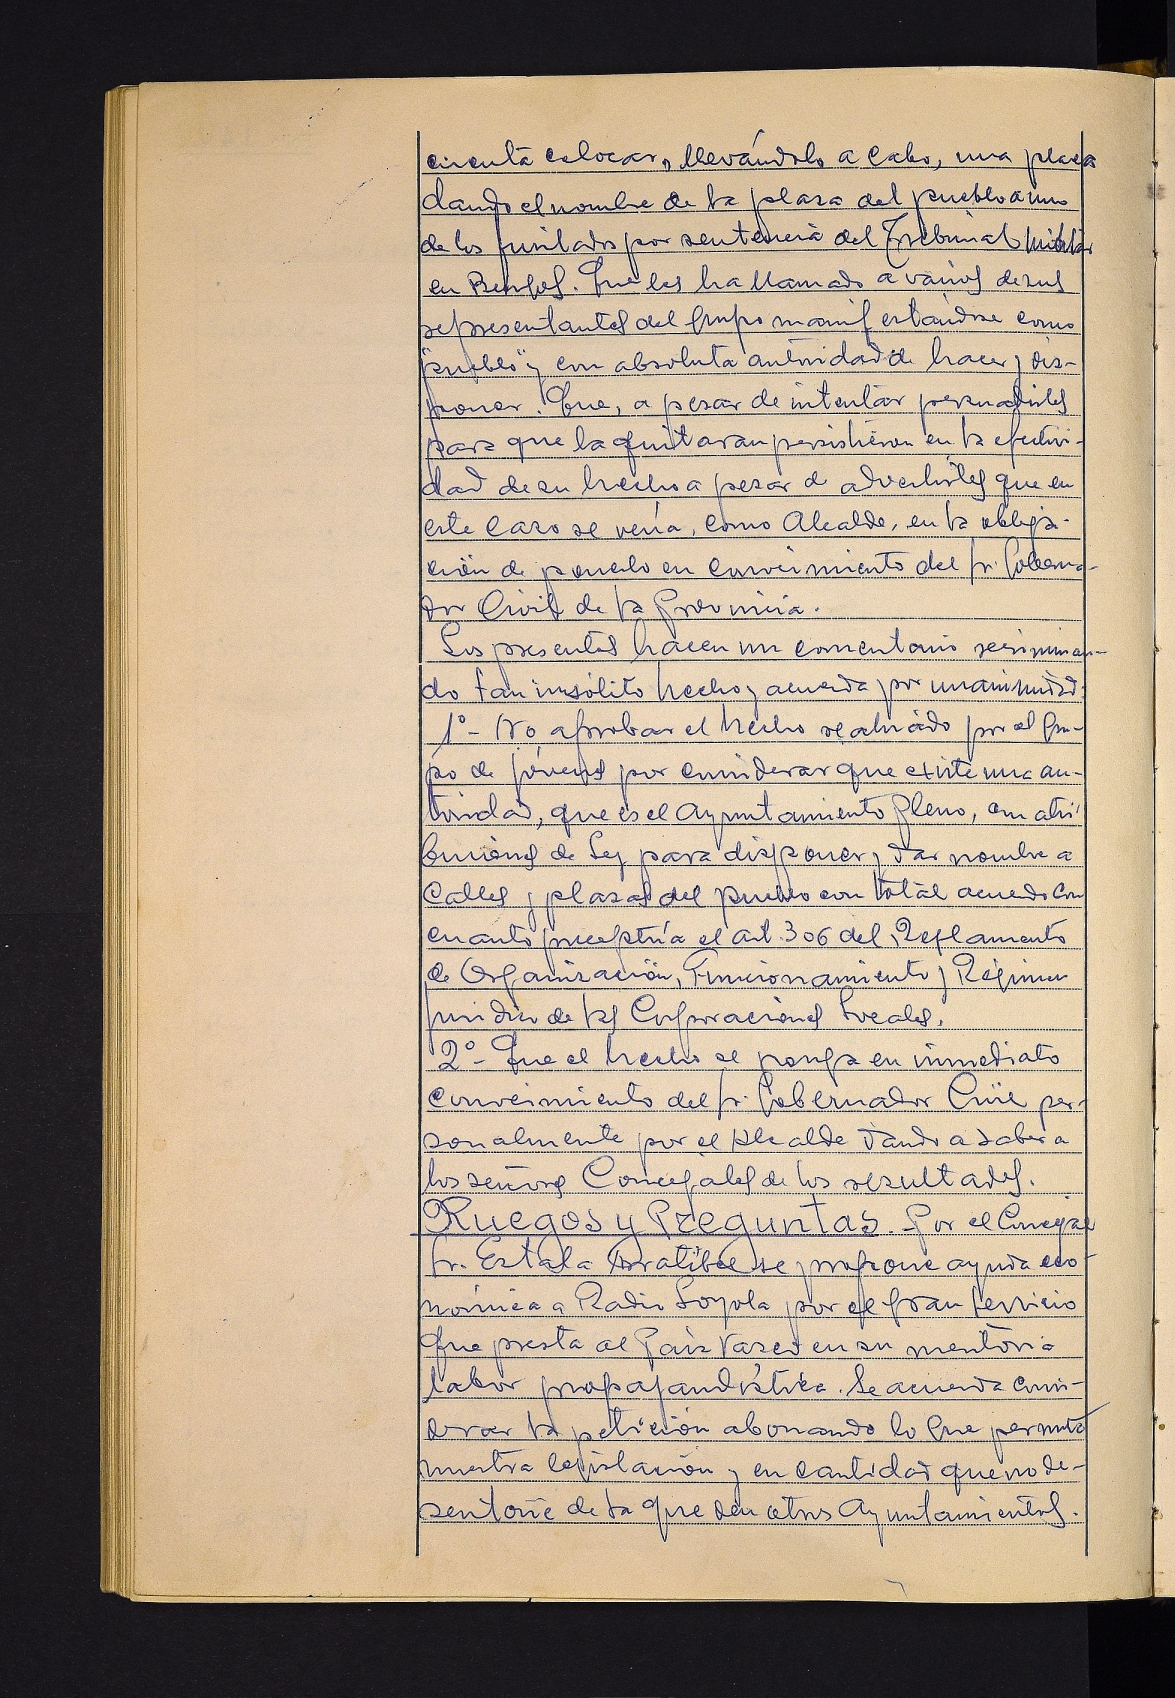 cuenta colocar, llevándolo a cabo, una placa
dando el nombre de la plaza del pueblo a uno
de los fusilados por sentencia del Tribunal Militar
en Burgos. Que les ha llamado a varios de sus
representantes del grupo manifestándose como
"pueblo" y con absoluta autoridad de hacer y dis-
poner. Que, a pesar de intentar persuadirles
para que la quitaran persistieron en la efectivi-
dad de su hecho a pesar de advertirles que en
este caso se vería, como Alcalde, en la obliga-
ción de ponerlo en conocimiento del Sr. Goberna-
dor Civil de la Provincia.
Los presentes hacen un comentario recriminan-
do tan insólito hecho y acuerda por unanimidad:
1º- No aprobar el hecho realizado por el gru-
po de jóvenes por considerar que existe una au-
toridad, que es el Ayuntamiento Pleno, con atri-
buciones de Ley para disponer y dar nombre a
calles y plazas del pueblo con total acuerdo con
cuanto preceptúa el art. 306 del Reglamento
de Organización, Funcionamiento y Régimen
jurídico de las Corporaciones Locales.
2º- Que el hecho se ponga en inmediato
conocimiento del Sr. Gobernador Civil per-
sonalmente por el Alcalde dando a saber a
los señores Concejales de los resultados.
Ruegos y Preguntas. Por el Concejal
Sr. Estala Arratibel se propone ayuda eco-
nómica a Radio Loyola por el gran servicio
que presta al País Vasco en su meritoria
labor propagandística. Se acuerda consi-
derar la petición abonando lo que permita
nuestra legislación y en cantidad que no de-
sentone de la que den otros Ayuntamientos.